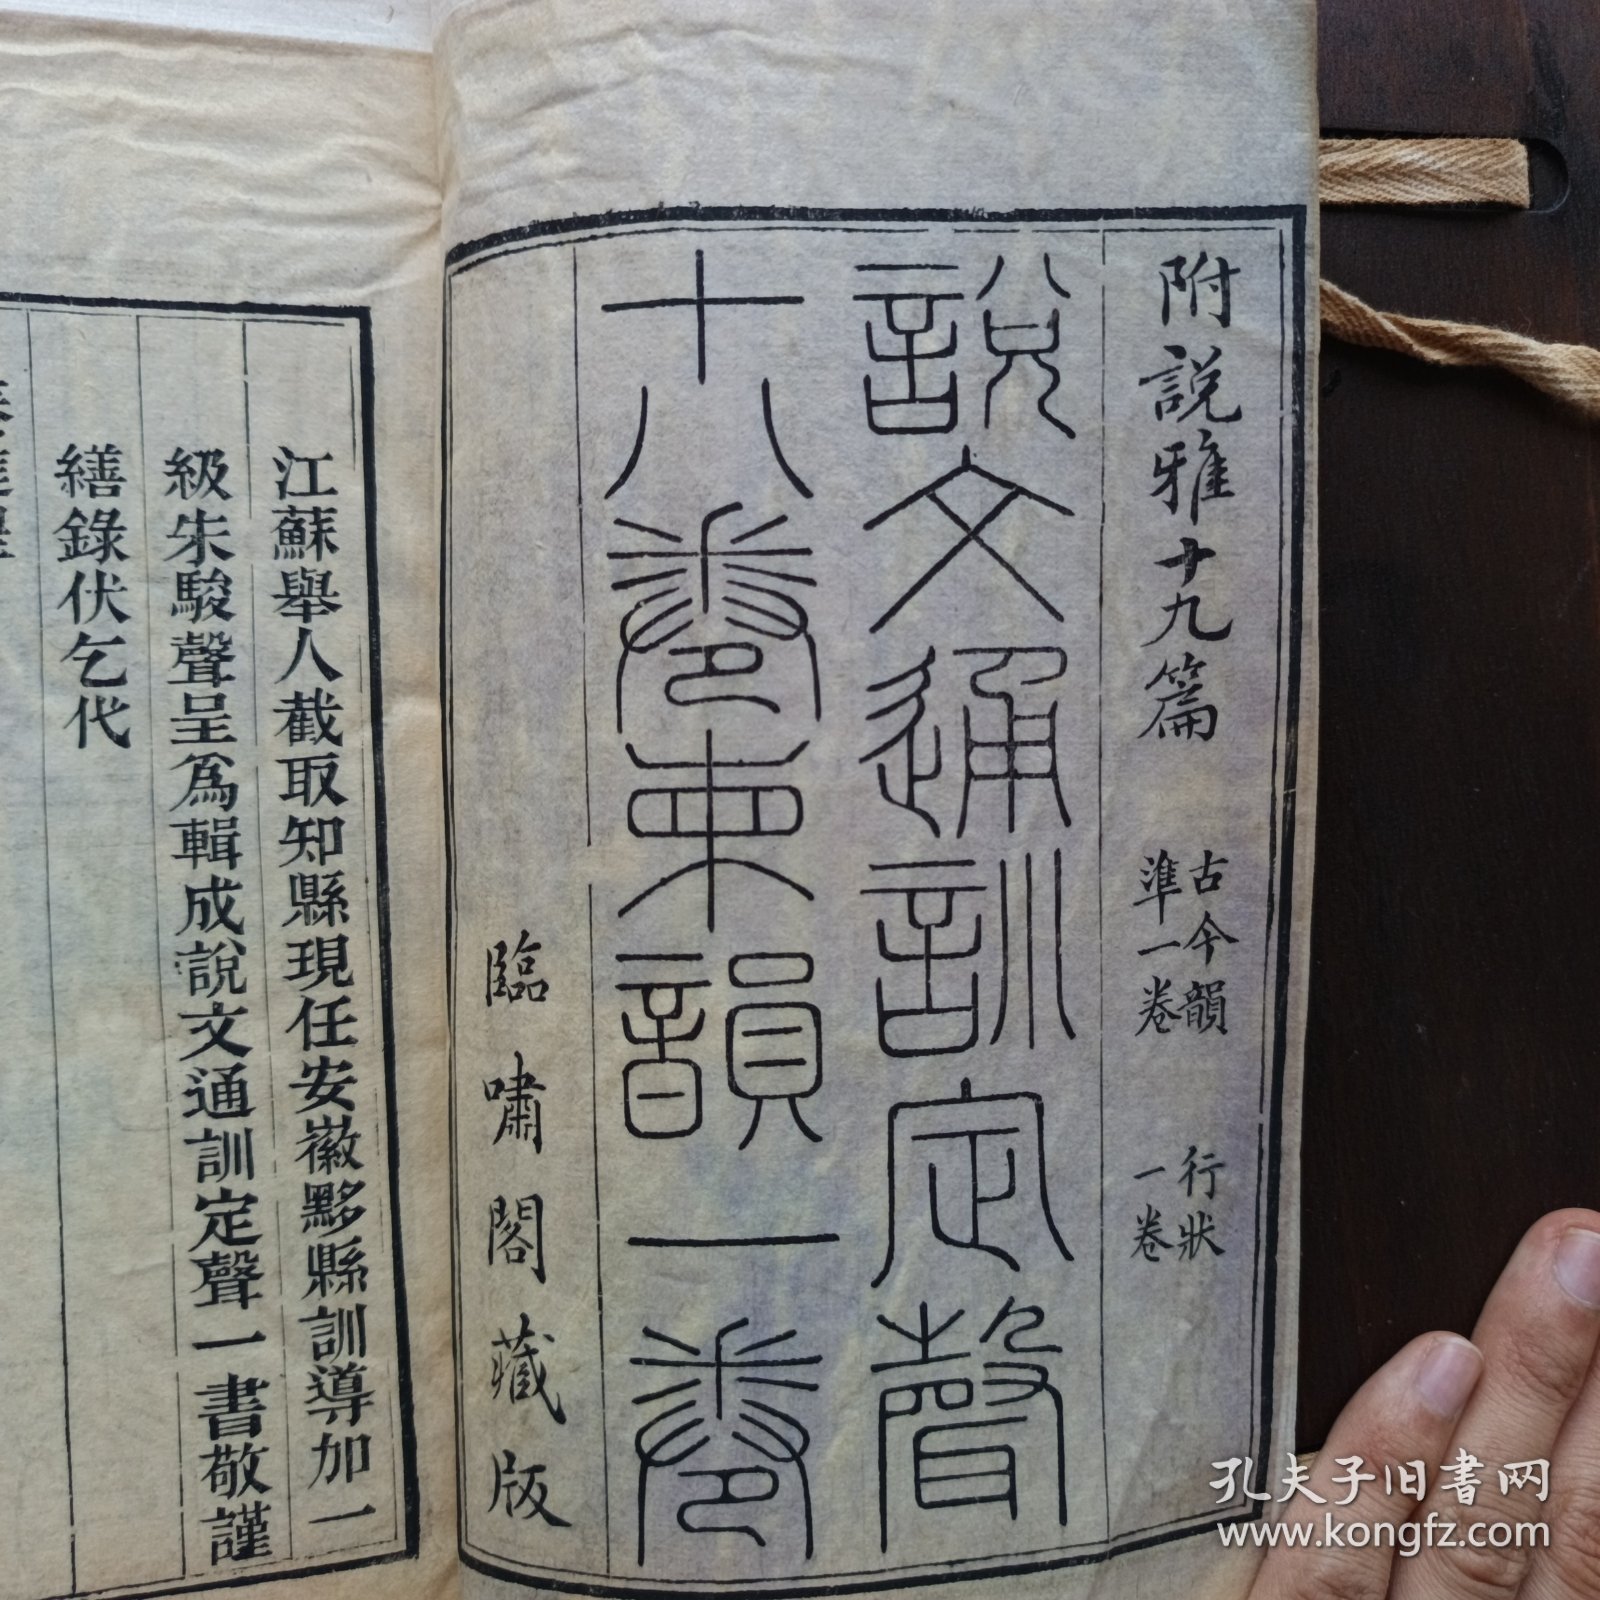 附說雅十九篇 古今韻準一卷 行狀一卷
說文通訓定聲
十八卷柬韻一卷
臨嘯閣藏版
江蘇舉人截取知縣現任安徽黟縣訓導加一
級朱駿聲呈爲輯成說文通訓定聲一書敬謹
繕錄伏乞代
孔夫子旧书网
www.kongfz.com